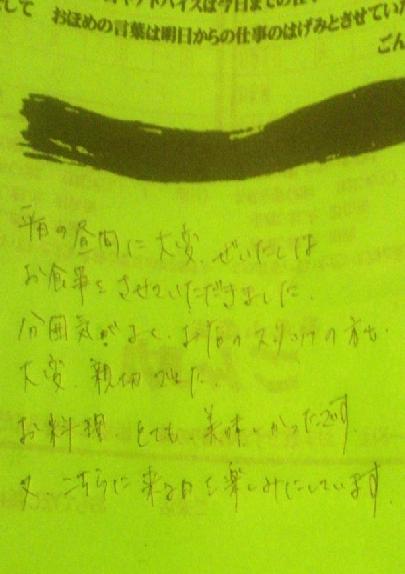 して
アドバイスは今日までの仕
おほめの言葉は明日からの仕事のはげみとさせていた
ごん
平日の昼間に大変、ぜいたくな
お食事をさせていただきました。
雰囲気がよく、お店のスタッフの方も
大変、親切でした。
お料理とても美味しかったです。
又、こちらに来る日を楽しみにしています。